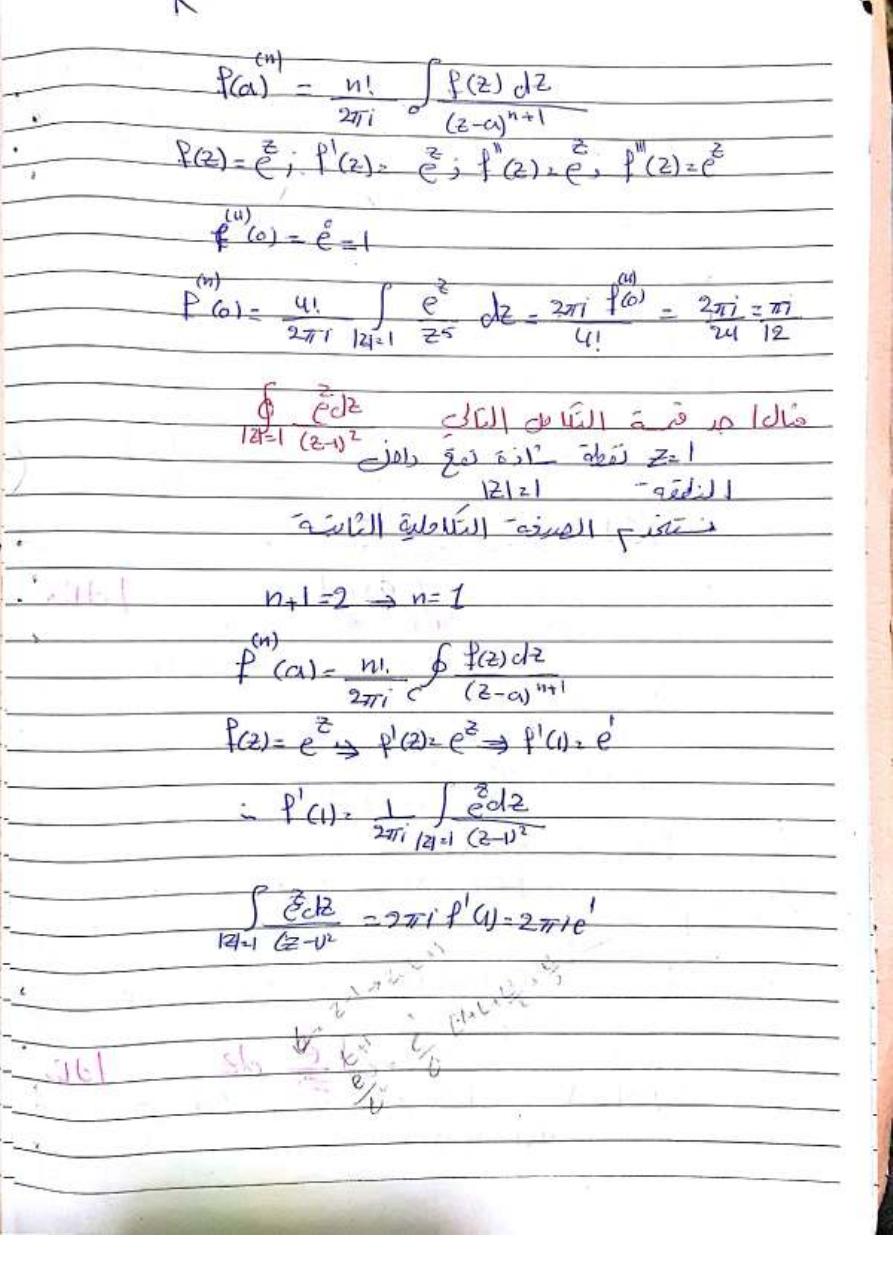 f(a)^(n) = n!/2πi ∫ f(z) dz/(z-a)^n+1
f(z) = e^z ; f'(z) = e^z ; f''(z) = e^z ; f'''(z) = e^z
f^(4)(0) = e^0 = 1
f^(n)(0) = 4!/2πi ∫_|z|=1 e^z/z^5 dz = 2πi f^(4)(0)/4! = 2πi/24 = πi/12
مثال/ جد قيمة التكامل التالي ∮_|z|=1 e^z dz/(z-1)^2
z=1 نقطة شاذة تقع داخل
المنطقة |z|=1
نستخدم الصيغة التكاملية الثانية
n+1=2 → n=1
f^(n)(a) = n!/2πi ∮_c f(z)dz/(z-a)^n+1
f(z) = e^z ⇒ f'(z) = e^z ⇒ f'(1) = e^1
∴ f'(1) = 1/2πi ∫_|z|=1 e^z dz/(z-1)^2
∫_|z|=1 e^z dz/(z-1)^2 = 2πi f'(1) = 2πi e^1